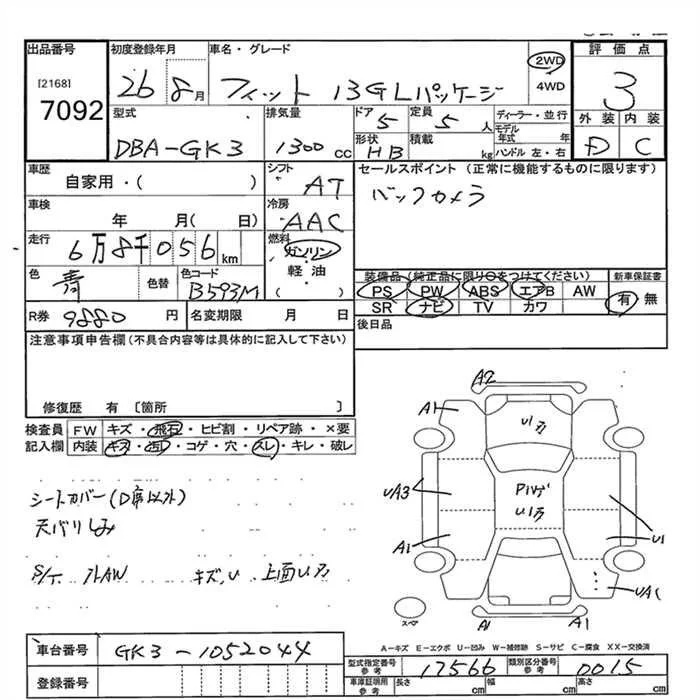 出品番号 初度登録年月 車名・グレード 評価点
[2168]
7092
26 8月 フィット 13G Lパッケージ 2WD 4WD 3
型式 排気量 ドア 定員 ディーラー・並行 外装 内装
DBA-GK3 1300 cc 5 5 人 モデル年式 年 D C
形状 積載 kg ハンドル 左・右
HB
車歴 シフト セールスポイント (正常に機能するものに限ります)
自家用・( ) AT バックカメラ
車検 冷房
年 月( 日) AAC
走行 燃料
6万8千056 km ガソリン
軽油
( )
色 青 色替 色コード B593M
装備品(純正品に限り○をつけてください) 新車保証書
PS PW ABS エアB AW 有 無
SR ナビ TV カワ
R券 9880 円 名変期限 月 日 後日品
注意事項申告欄(不具合内容等は具体的に記入して下さい)
修復歴 有 〔箇所 〕
検査員記入欄 FW キズ・飛石・ヒビ割・リペア跡・×要
内装 キズ・汚レ・コゲ・穴・スレ・キレ・破レ
シートカバー(D席以外)
天バリしみ
S/T 社AW キズ、U 上面U万
A2
A1
U1万
UA3
Pいげ
U1万
A1
U1
UA1
スペア
A1 A1
A-キズ E-エクボ U-凹み W-補修跡 S-サビ C-腐食 XX-交換済
車台番号 GK3-1052044
型式指定番号 参考 17566 類別区分番号 参考 0015
登録番号
車庫証明用 参考 長さ cm 幅 cm 高さ cm